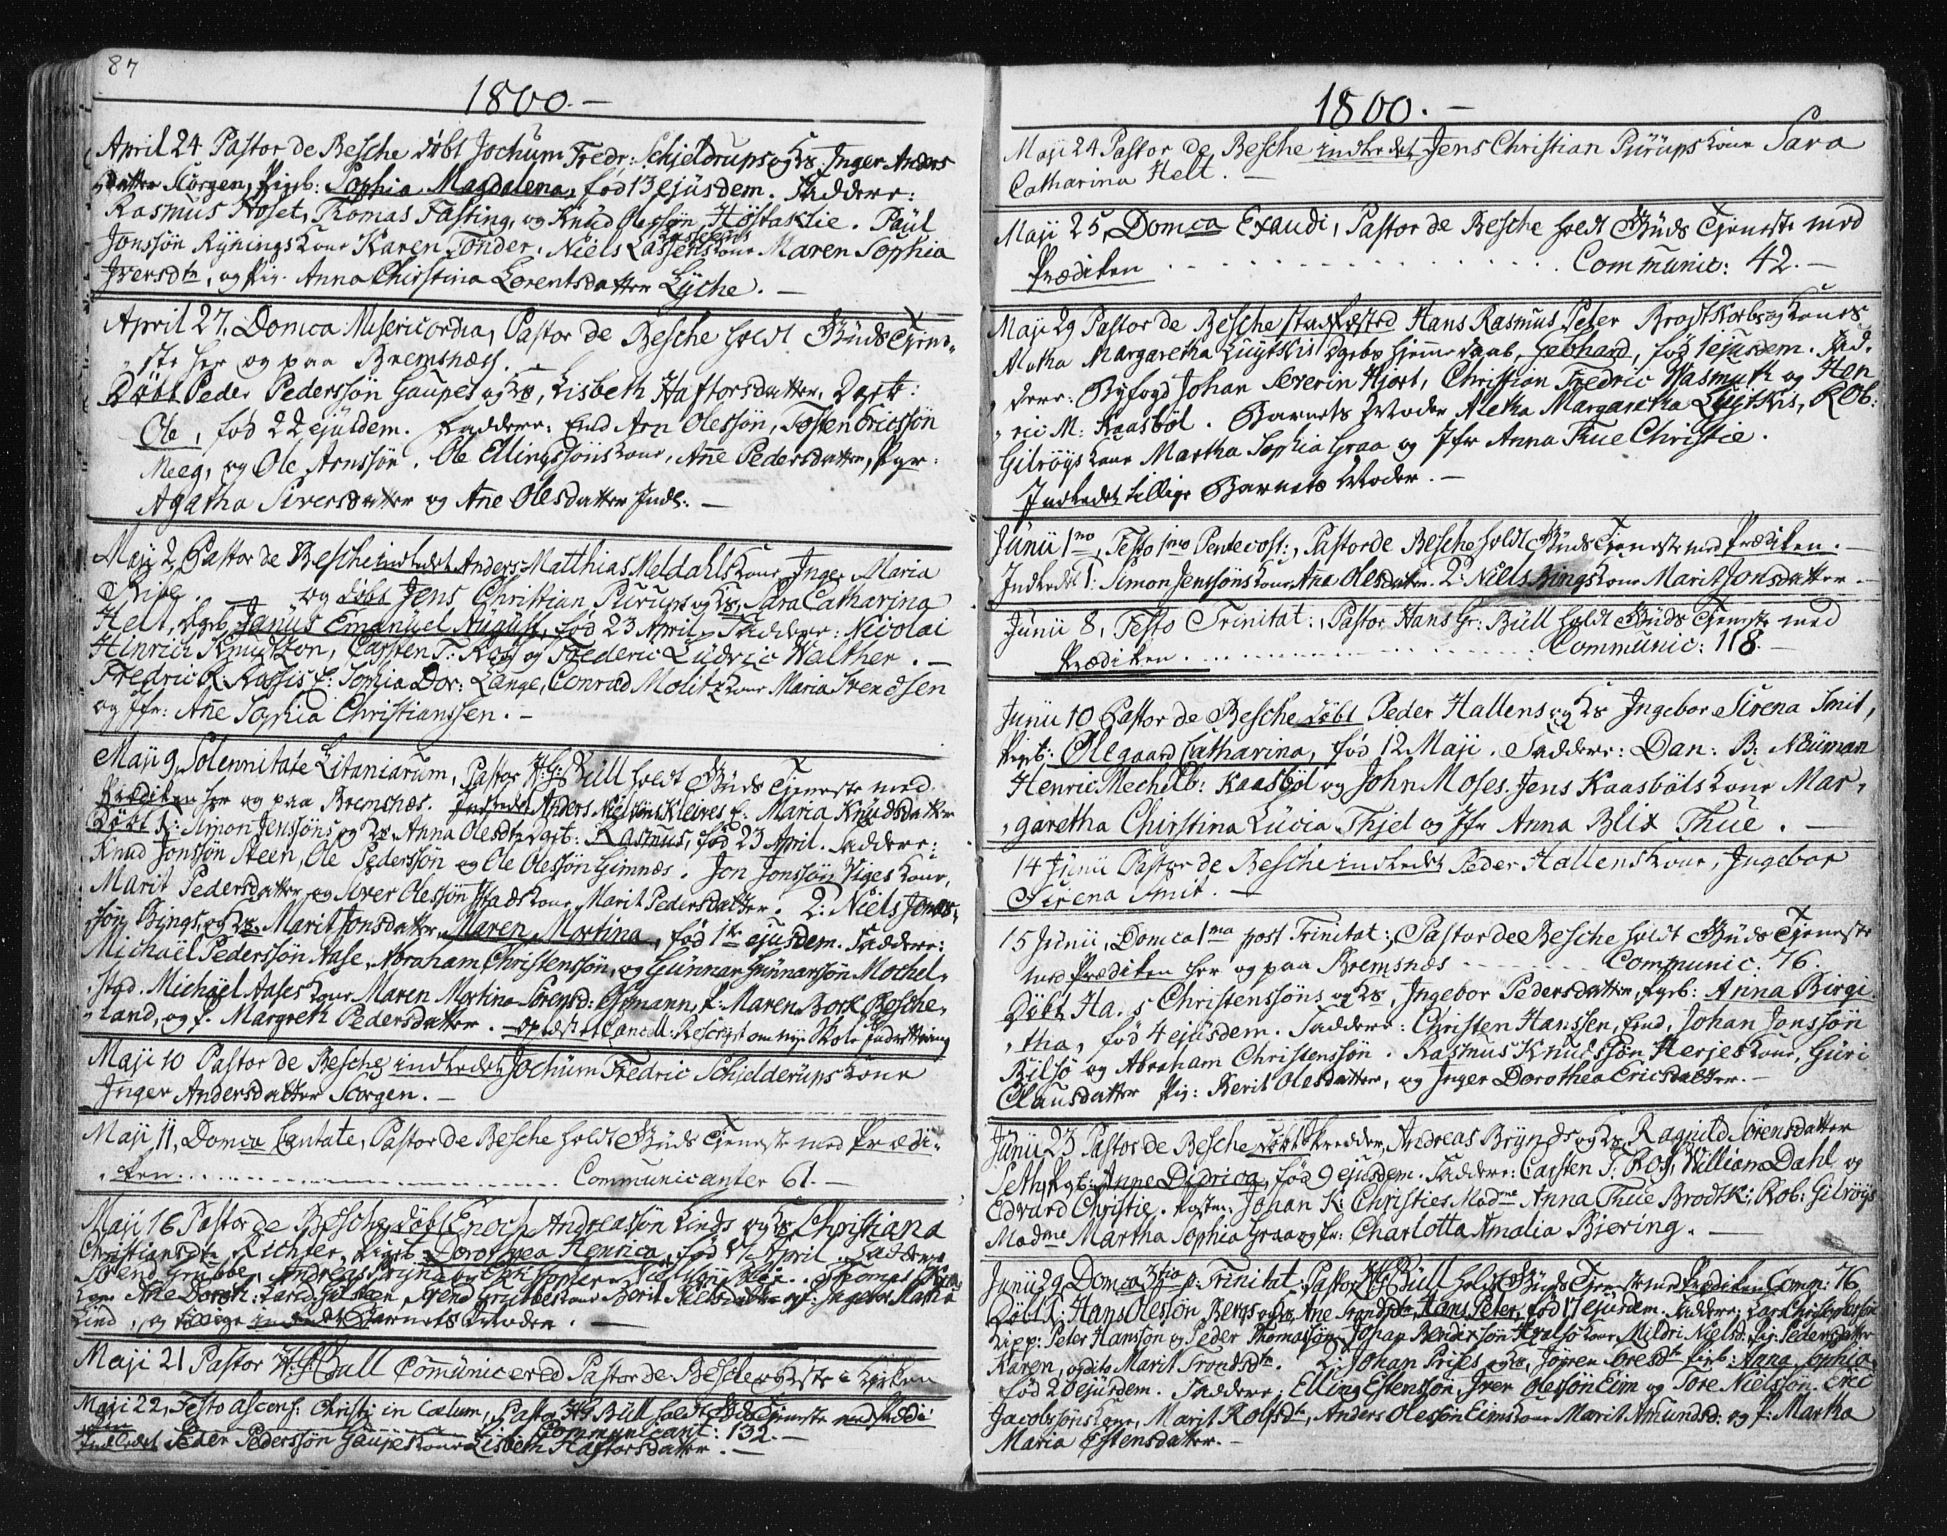 87
1800.-
April 24 Pastor de Besche döbt Jochum Fredr: Schjeldrups og Hs. Inger Anders
datter Scorgen, Pigeb: Sophia Magdalena, föd 13 ejusdem. Faddere:
Rasmus Roset, Thomas Fasting, og Knud Olessön Höstaklie. Paul
Jonssön Rynings kone Karen Tonder, Niels Lassens kone Maren Sophia
Iversdtr, og Pig. Anna Christina Lorentsdatter Lyche. -
April 27. Domca Misericordia, Pastor de Besche holdt Guds Tjene-
ste her og paa Bremsnæs.
Döbt Peder Pederssön Gaupes og Hs, Lisbeth Haftorsdatter, Dgeb:
Ole, föd 22 ejusdem. Faddere: Arn Olessön, Tosten Ericssön
Meeg, og Ole Arnssön. Ole Ellingssöns kone, Ane Pedersdatter, Pgr:
Agatha Siversdatter og Ane Olesdatter Indl. -
Maji 2, Pastor de Besche indledet Anders Matthias Meldahls kone Inger Maria
Ribe. - og döbt Jens Christian Pürups og Hs, Sara Catharina
Helt, Dgeb. Janus Emanuel August, föd 23 April. Faddere: Nicolai
Hinrich Knudtzon, Carsten T: Ros og Frederic Ludvic Walther. -
Fredric R: Kassis E: Sophia Dor: Lange, Conrad Molitz kone Maria Svendsen
og Jfr: Ane Sophia Christianssen. -
Maji 9, Solennitate Litaniarum, Pastor H: G: Büll holdt Guds Tjeneste med
Prædiken her og paa Bremsnæs. Indledet Anders Nielsens Kleives E: Maria Knudsdatter
Döbt 1: Simon Jenssöns og Hs Anna Olesdtr Dgb: Rasmus, föd 23 April. Faddere:
Knud Jonssön Steen, Ole Pederssön og Ole Olessön Gimnæs. Jon Jonssön Viges kone,
Marit Pedersdatter og Iver Olessön Istads kone Marit Pedersdatter. 2: Niels Jens-
sön Bings, og Hs. Marit Jonsdatter, Maren Martina, föd 1ste ejusdem. Faddere:
Michaël Pederssön Aase, Abraham Christenssön, og Gunnar Gunnarssön Mochel-
stad. Michäel Aases kone Maren Martina Sörensd: Ersmann, P: Maren Bork Besche-
land, og P. Margreth Pedersdatter. - oplæst et Cancell: Rescript om nye Skole Indretning
Maji 10 Pastor de Besche indledet Jochum Fredric Schjelderups kone
Inger Andersdatter Scorgen. -
Maji 11, Domca Cantate, Pastor de Besche holdt Guds Tjeneste med Prædi-
ken. Communicanter 61. -
Maji 16 Pastor de Besche döbt Enoch Andreassön Linds og Hs Christiana
Christiansdtr Richter, Pigeb. Dorothea Henrica, föd April. Faddere
Svend Grubbe, Andreas Bryn
kone Ane Doroth: , Svend Grubbes kone Berit Nielsdatter og Jfr: Ingebor Maria
Lind, og tillige indledet Barnets Moder. -
Maji 21 Pastor H: G: Büll Comünicered Pastor de Besche og Kste i Kirken
Maji 22, Festo ascens: Christi in Coelum, Pastor H: G: Büll holdt Guds Tjeneste med Prædi-
ken Communicant: 132. -
Indledet Peder Pederssön Gaupes kone Lisbeth Haftorsdatter. -
1800. -
Maji 24 Pastor de Besche indledet Jens Christian Pürups kone Sara
Catharina Helt. -
Maji 25, Domca Exaudi, Pastor de Besche holdt Guds Tjeneste med
Prædiken Communic: 42. -
Maji 29 Pastor de Besche stadfæsted Hans Rasmus Peter Brodtkorbs og Kones
Aletha Margaretha Luytkis Dgebs hjemme daab, Gebhard, föd 1 ejusdem. Fad-
dere: Byfogd Johan Severin Hjort, Christian Fredric Wasmuth og Hen-
ric M: Kaasböl. Barnets Moder Aletha Margaretha Luytkis, Rob:
Gilröys kone Martha Sophia Graa og Jfr Anna Thue Christie.
Indledet tillige Barnets Moder. -
Junii 1mo, Festo 1mo Pentecost:, Pastor de Besche holdt Guds Tjeneste med Prædiken. -
Indledet 1: Simon Jenssöns kone Ana Olesdatter. 2: Niels Bings kone Marit Jonsdatter. -
Junii 8, Festo Trinitat:, Pastor Hans Gr: Büll holdt Guds Tjeneste med
Prædiken. Communic: 118. -
Junii 10 Pastor de Besche döbt Peder Hallens og Hs Ingebor Sirena Smit,
Pigeb: Olegaard Catharina, föd 12 Maji. Faddere: Dan: B: Neuman
Henric Mechelb: Kaasböl og John Moses. Jens Kaasböls kone Mar-
garetha Chirstina Lucia Thjel og Jfr Anna Blix Thue. -
14 Junii Pastor de Besche indledet Peder Hallens kone, Ingebor
Sirena Smit. -
15 Junii, Domca 1ma post Trinitat:, Pastor de Besche holdt Guds Tjeneste
med Prædiken her og paa Bremsnæs Communic: 76.
Döbt Ha.s Christenssöns og Hs, Ingebor Pedersdatter, Pgeb: Anna Birgi-
tha, föd 4 ejusdem. Faddere: Christen Hanssen, Johan Jonssön
Bilsö og Abraham Christenssön. Rasmus Knudssön Herjes kone, Guri
Clausdatter Pig: Berit Olesdatter, og Inger Dorothea Ericsdatter. -
Junii 23 Pastor de Besche döbt Skredder Andreas Brynds og Hs Ragnild Sörensdatter
Seth, Pgb: Anne Didrica, föd 9 ejusdem. Faddere: Carsten T: Ros, Willion Dahl og
Edvard Christie. Johan K: Christies Madme Anna Thue Brodtk: Rob: Gilröys
Madme Martha Sophia Graa og Jfr: Charlotta Amalia Bjering. -
Junii 29 Domca 3tia p: Trinitat. Pastor H: G: Büll holdt Guds Tjeneste med Prædiken Comm: 76
Döbt 1: Hans Olessön Bergs og Hs, Ane Trondsdtr, Hans Peter, föd 17 ejusdem. Faddere: Lars Christophersön
Lipp: Peter Hansson og Peder Thomassön, Johan Bendixsön Hvalsö kone Mildri Nielsd: Pig: Pedersdatter
Karen, og dito Marit Trondsdtr. 2: Johan Prises og Hs, Jören Toresdtr Pigeb: Anna Sophia,
föd 20 ejusdem. Faddere: Elling Estenssön, Iver Olessön Eim og Tore Nielssön. Eric
Jacobssöns kone, Marit Rolfsdtr, Anders Olessön Eims kone Marit Amundsd: og P: Martha
Maria Estensdatter. -